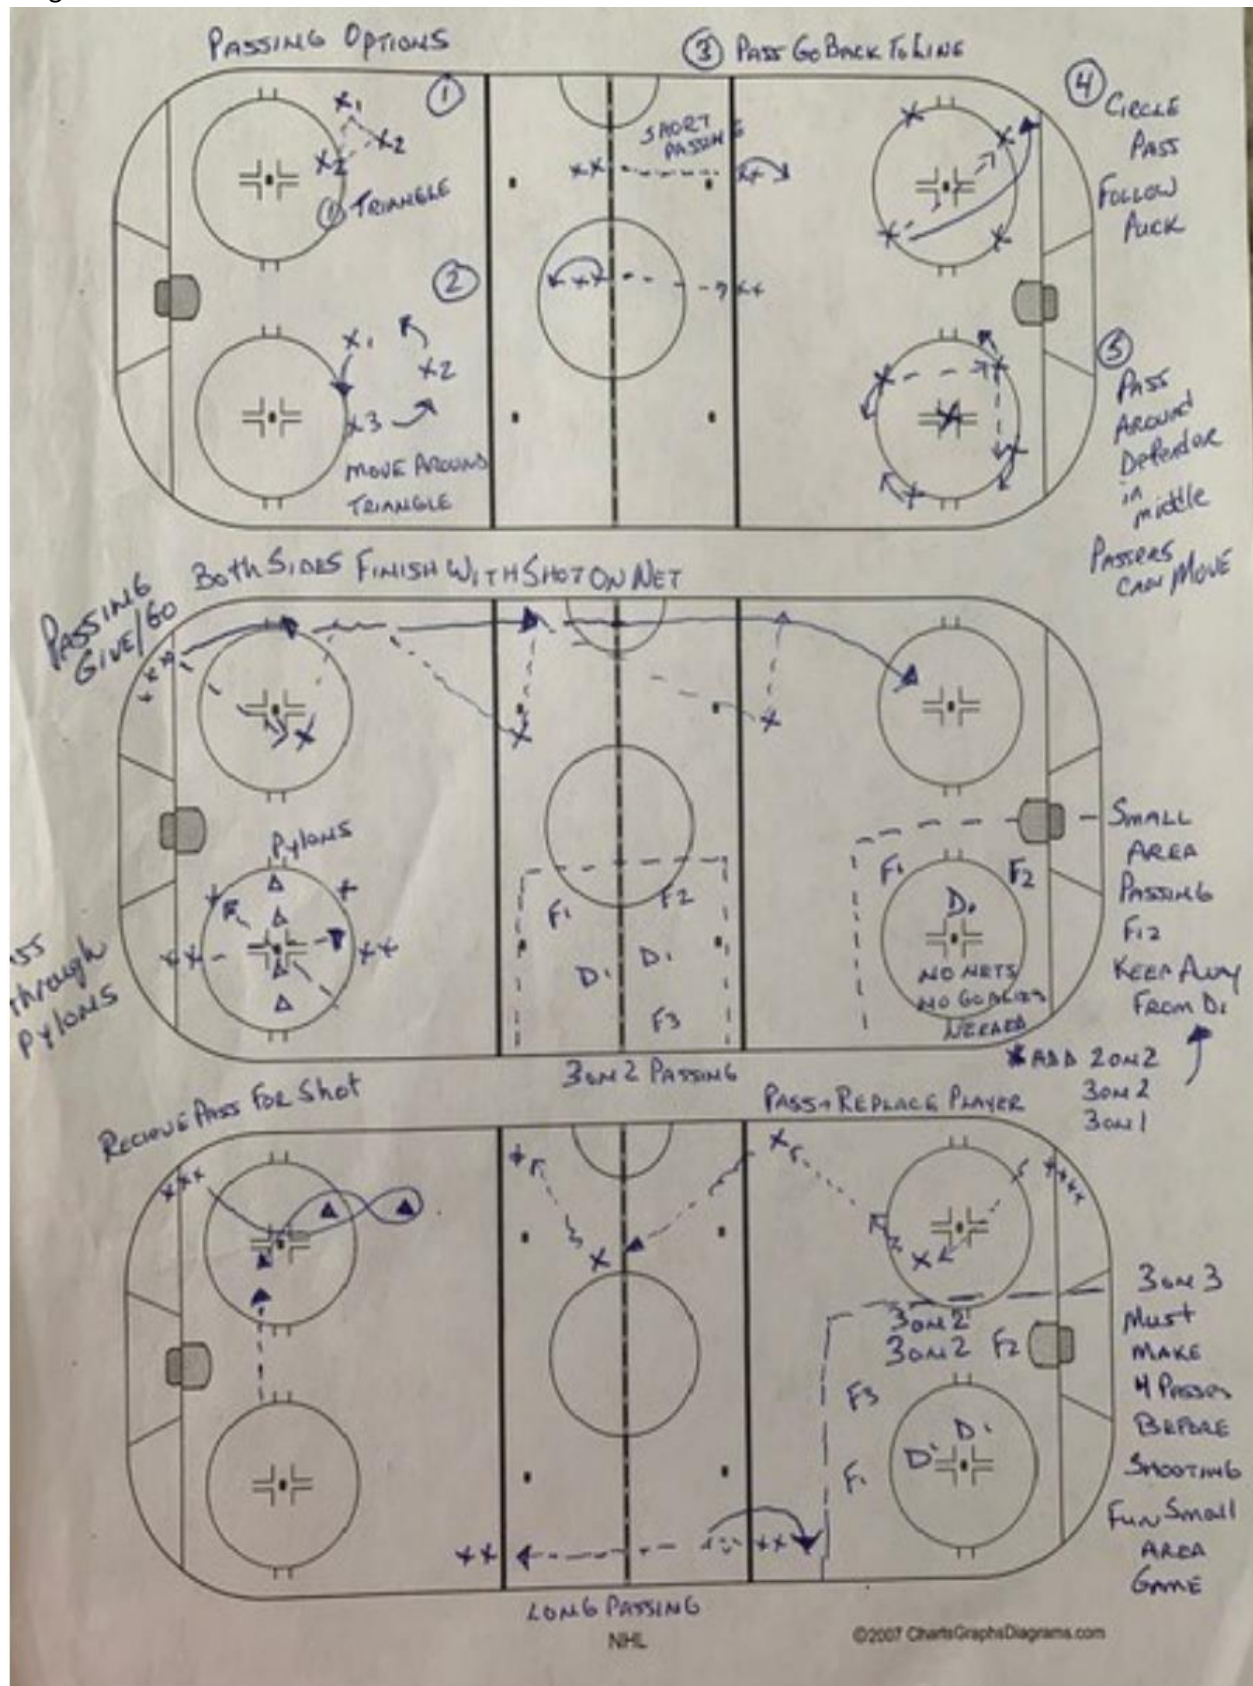 PASSING OPTIONS
③ PASS GO BACK TO LINE
①
X1
X2
X2
① TRIANGLE
SHORT
PASSING
XX
XX
④
CIRCLE
PASS
FOLLOW
PUCK
X
X
X
X
②
X1
X2
X3
MOVE AROUND
TRIANGLE
XX
XX
⑤
PASS
AROUND
Defender
in
middle
PASSERS
CAN MOVE
X
X
X
X
X
Both SIDES FINISH WITH SHOT ON NET
PASSING
GIVE/GO
XXXX
X
X
X
Pylons
X
X
XX
XX
ss
through
Pylons
F1
F2
D1
D1
F3
3 ON 2 PASSING
F1
F2
D1
NO NETS
NO GOALIES
NEEDED
SMALL
AREA
PASSING
F12
KEEP AWAY
FROM D1
* ADD 2 ON 2
3 ON 2
3 ON 1
RECIEVE PASS FOR Shot
PASS + REPLACE PLAYER
XXX
X
X
X
X
XXXX
3 ON 2
3 ON 2
F2
F3
D1
D1
F1
3 ON 3
MUST
MAKE
4 PASSES
BEFORE
SHOOTING
FUN SMALL
AREA
GAME
XX
XX
LONG PASSING
NHL
©2007 ChartsGraphsDiagrams.com